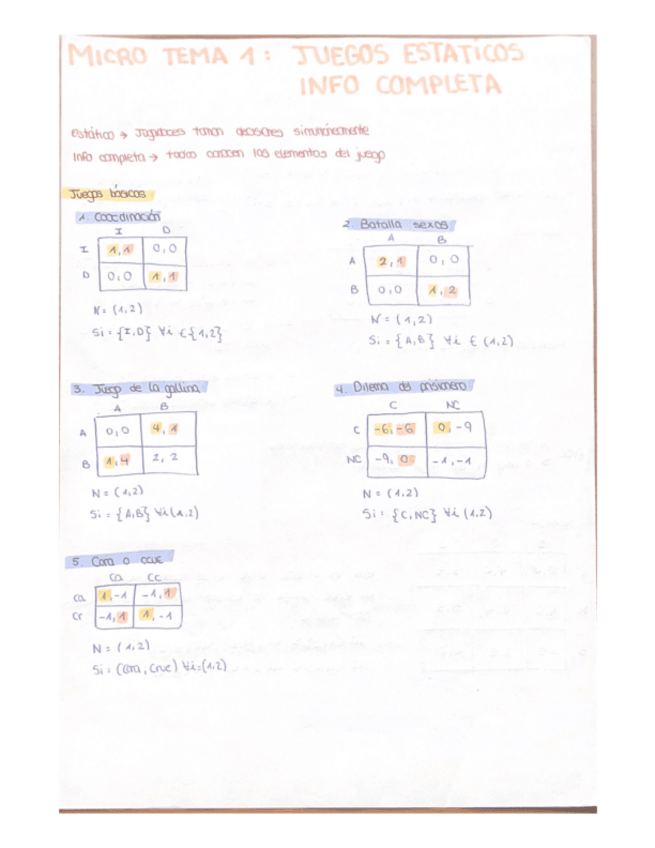 MICRO TEMA 1: JUEGOS ESTATICOS
INFO COMPLETA
Estático → Jugadores toman decisiones simultáneamente
Info completa → todos conocen los elementos del juego
Juegos básicos
1. Coordinación
I D
I 1,1 0,0
D 0,0 1,1
N = (1,2)
Si = {I,D} ∀i ∈ {1,2}
2. Batalla sexos
A B
A 2,1 0,0
B 0,0 1,2
N = (1,2)
Si = {A,B} ∀i ∈ (1,2)
3. Juego de la gallina
A B
A 0,0 4,1
B 1,4 2,2
N = (1,2)
Si = {A,B} ∀i (1,2)
4. Dilema del prisionero
C NC
C -6,-6 0,-9
NC -9,0 -1,-1
N = (1,2)
Si = {C,NC} ∀i (1,2)
5. Cara o cruz
Ca Cr
Ca 1,-1 -1,1
Cr -1,1 1,-1
N = (1,2)
Si = (Cara, Cruz) ∀i=(1,2)